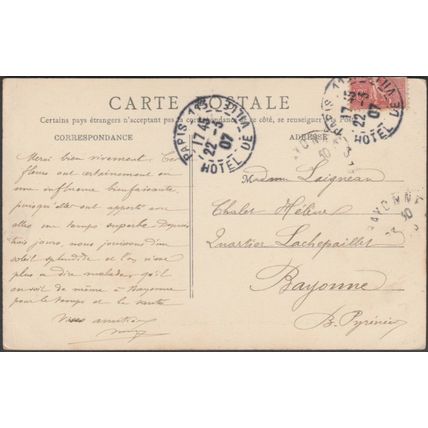 CARTE POSTALE
Certains pays étrangers n'acceptent pas la correspondance de ce côté, se renseigner
CORRESPONDANCE
ADRESSE
PARIS 113 HOTEL DE VILLE
17 45
22 - 3
07
PARIS 11 HOTEL DE VILLE
17 45
22 - 3
07
Merci bien vivement. Ces
fleurs ont certainement eu
une influence bienfaisante,
puisqu'elles ont apporté avec
elles un temps superbe. Depuis
trois jours, nous jouissons d'un
soleil splendide et l'on n'est
plus malade, qu'il
en soit de même à Bayonne
pour le temps et la santé
Madame Laigneau
Chalet Hélène
Quartier Lachepaillet
Bayonne
B. Pyrénées